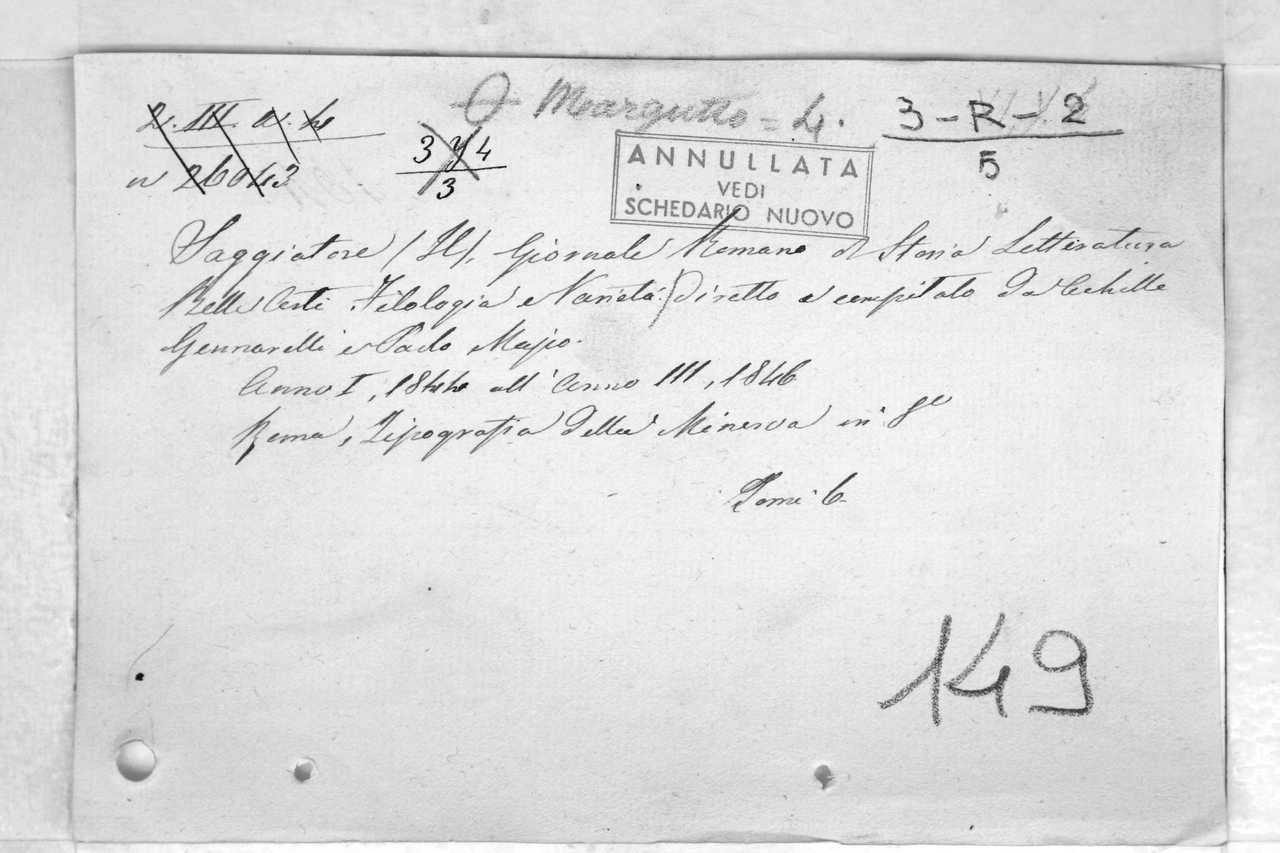 Margutto = 4.
3 - R - 2
5
2. III. a. 4
n 26043
3 y 4
3
ANNULLATA
VEDI
SCHEDARIO NUOVO
Saggiatore (Il), Giornale Romano di Storia Letteratura
Belle Arti Filologia e Varietà. Diretto e compilato da Achille
Gennarelli e Paolo Mazio.
Anno I, 1844 all' Anno III, 1846
Roma, Tipografia della Minerva in 8º
Tomi 6
149